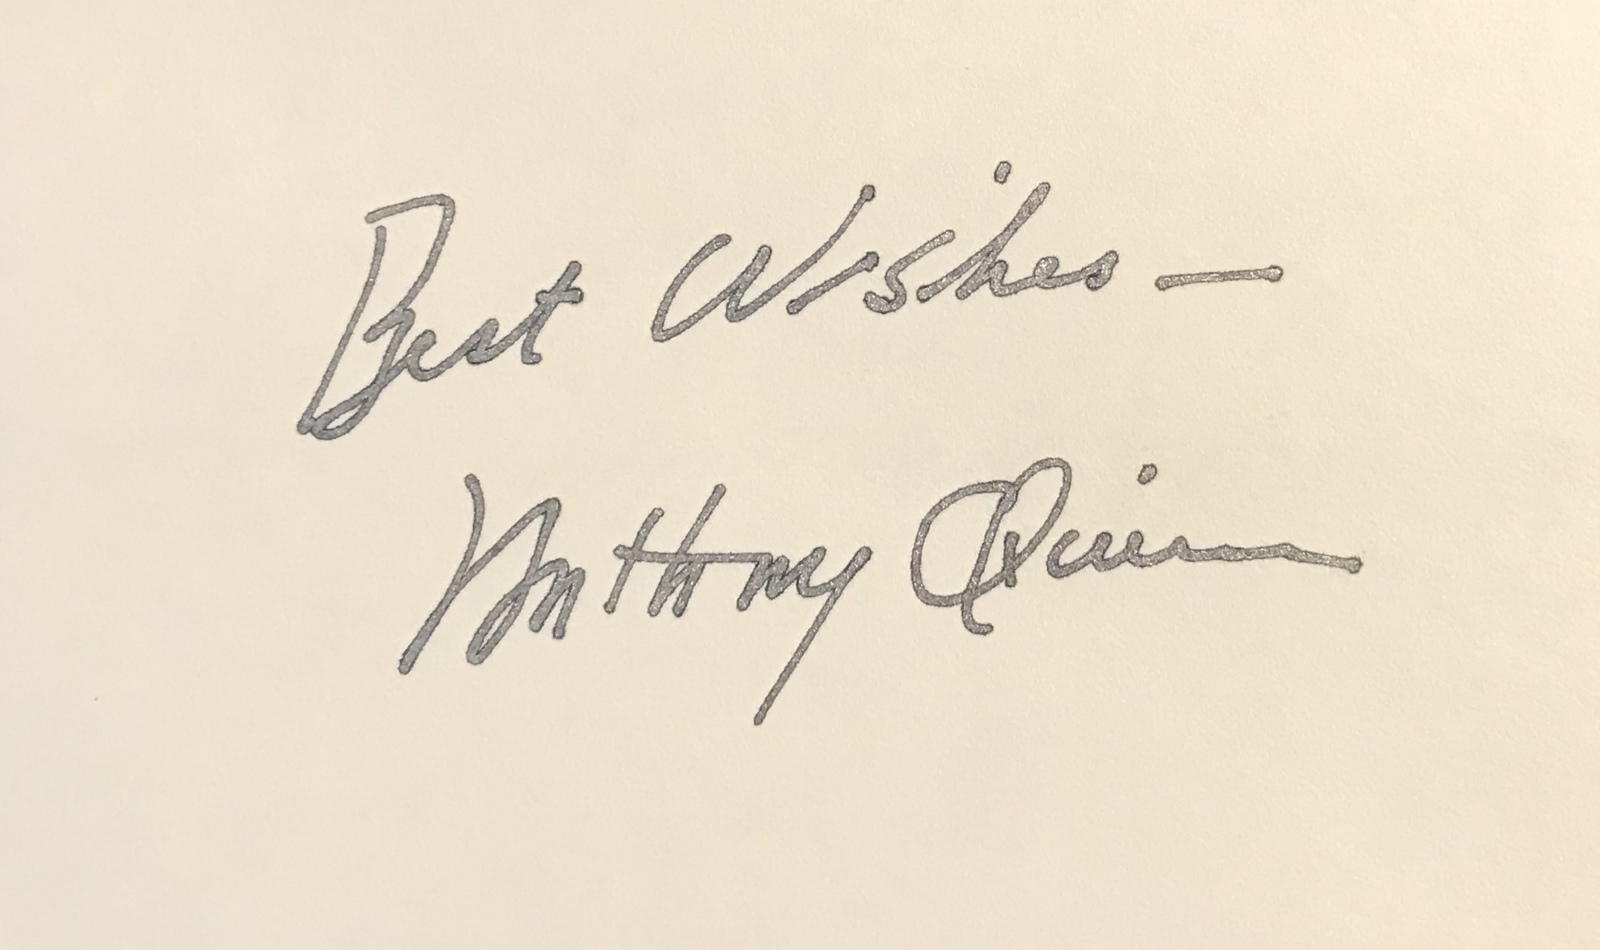 Best Wishes —
Anthony Quinn